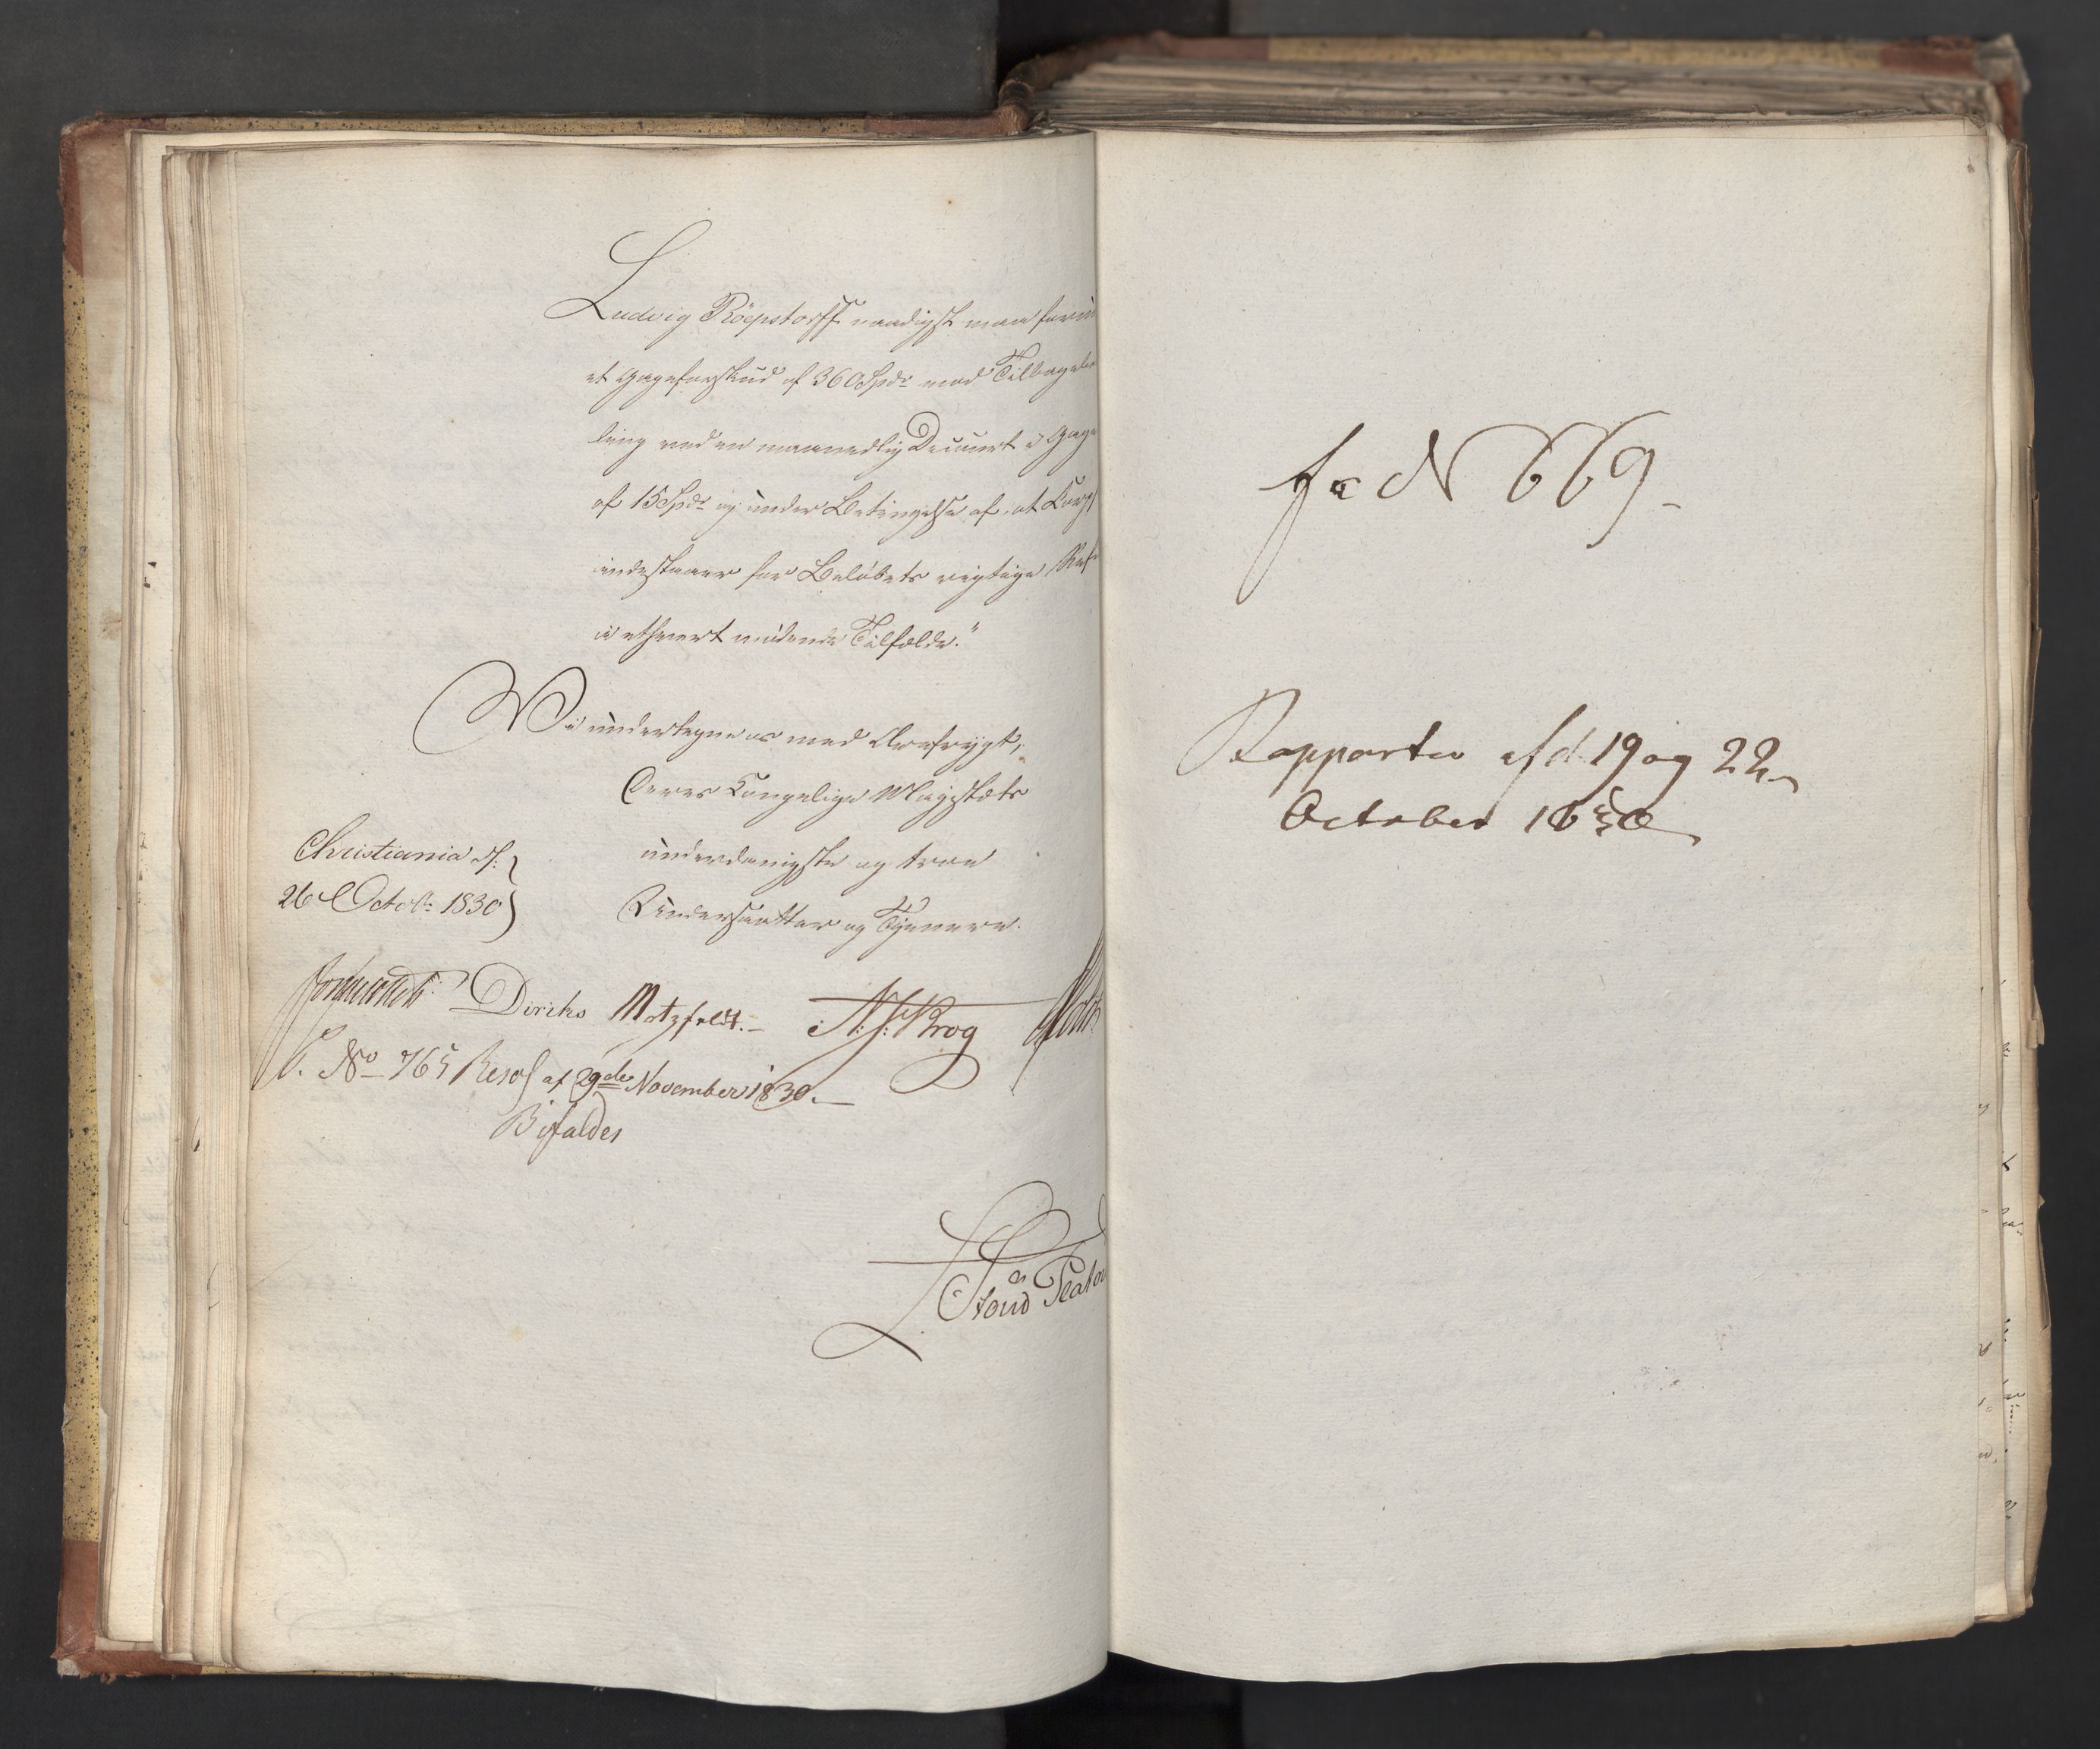 Ludvig Röepstorff naadigst maa forun
et Gageforskud af 360 Spdr mod Tilbagebe
ling ved en maanedlig Decourt i Gage
af 15 Spdr og under Betingelse af, at Corps
indestaaer for Beløbets rigtige Ref
i ethvert mødende Tilfælde."
Vi undertegne os med Ærefrygt,
Deres Kongelige Majestæts
underdanigste og troe
Undersaatter og Tjenere.
Christiania d:
26 Octob: 1830
Diriks Motzfeldt. Krog
No 765 Resol af 29de November 1830.
Bifaldes
Rapporter af d. 19 og 22
October 1830
No 669